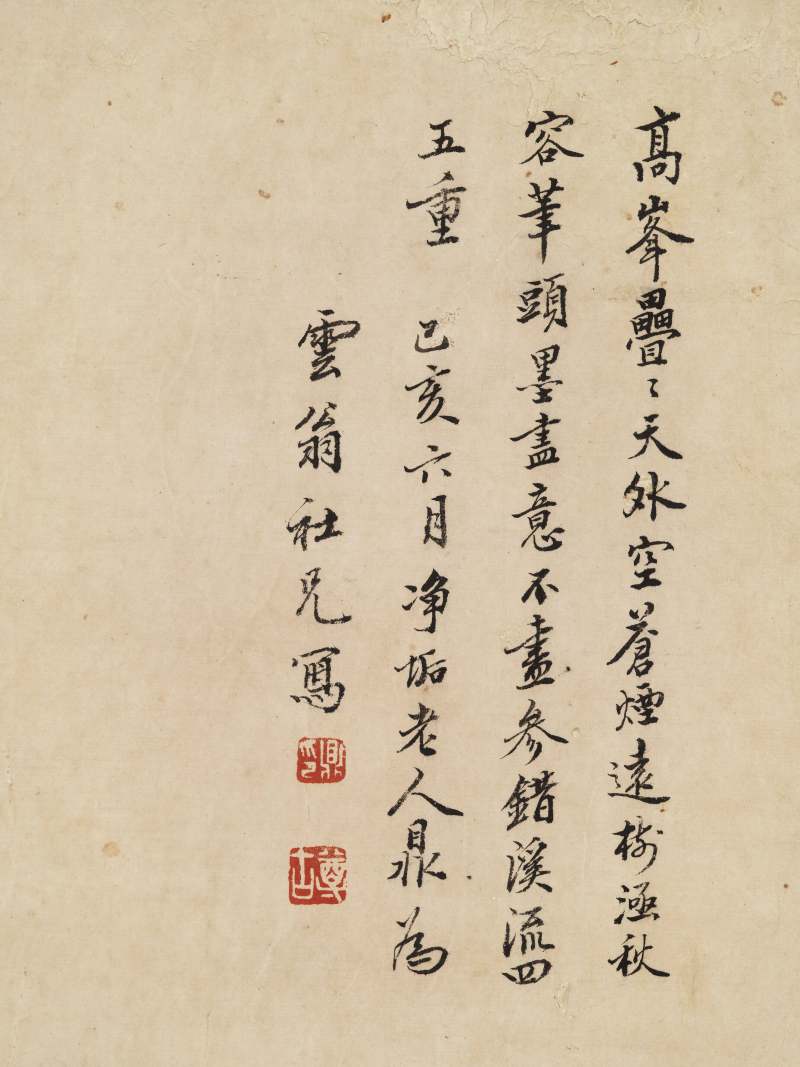 高峯疊〻天外空蒼煙遠樹溼秋
容筆頭墨盡意不盡參錯溪流四
五重　己亥六月净垢老人鼎為
雲翁社兄寫
鼎印
尊古